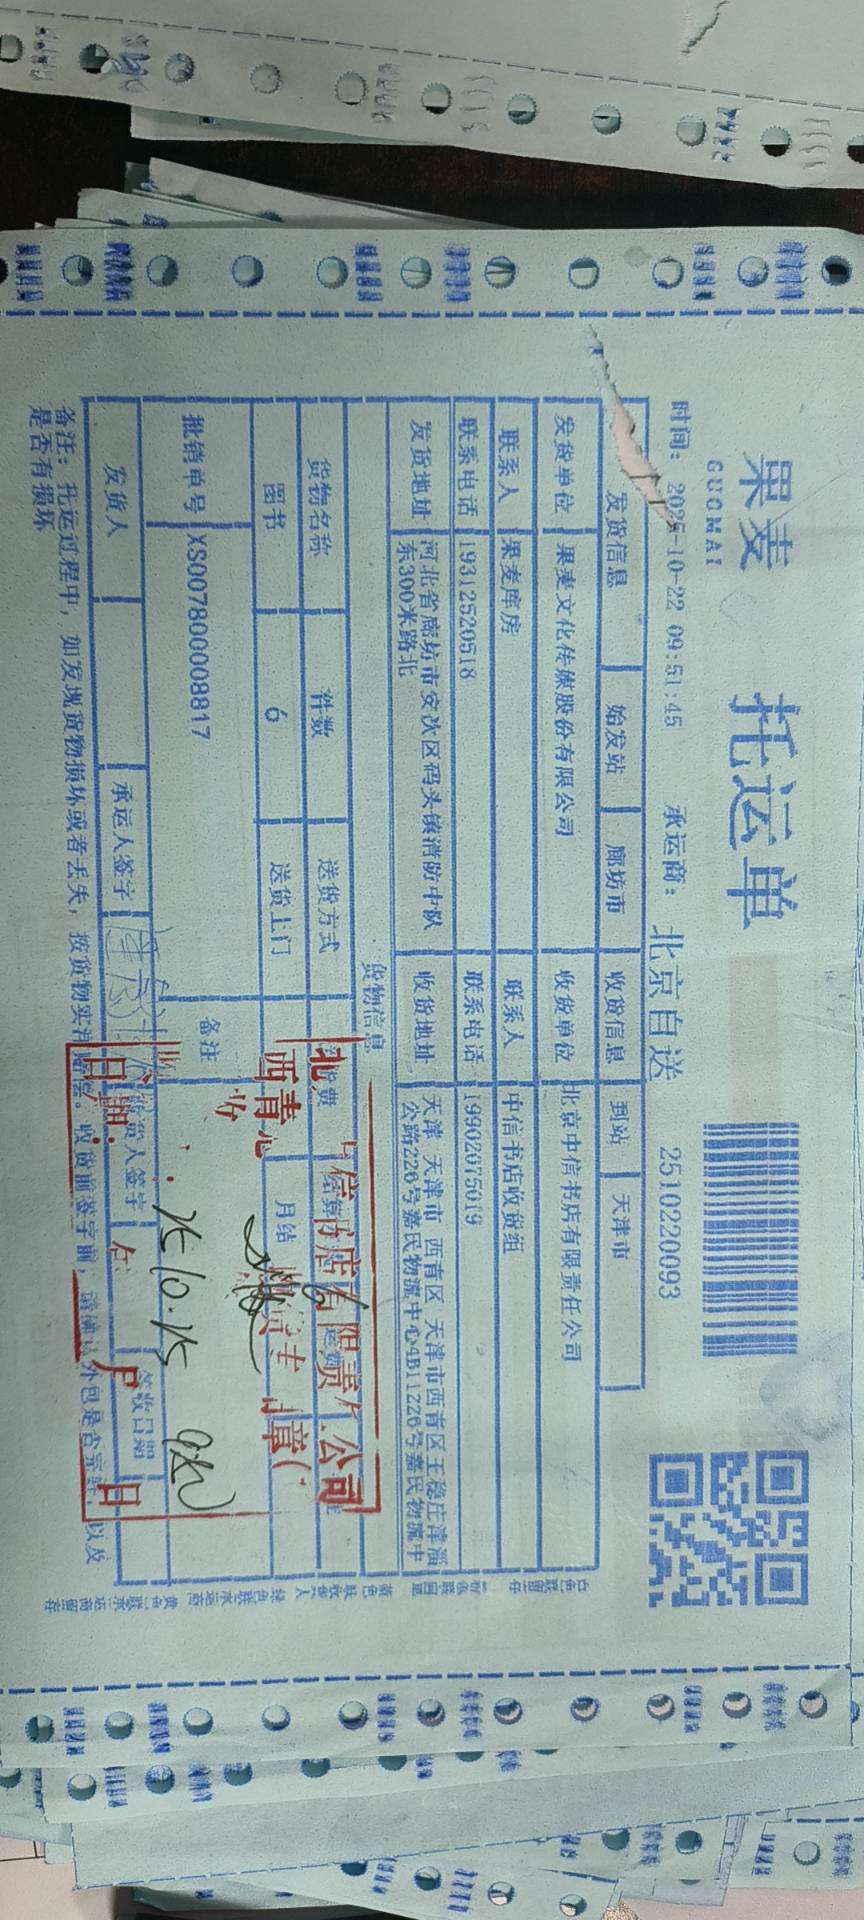 果麦
GUOMAI
托运单
时间: 2025-10-22 09:51:45 承运商: 北京自送 2510220093
发货信息 始发站 廊坊市 收货信息 到站 天津市
发货单位 果麦文化传媒股份有限公司 收货单位 北京中信书店有限责任公司
联系人 果麦库房 联系人 中信书店收货组
联系电话 19312520518 联系电话 19902075019
发货地址 河北省廊坊市安次区码头镇消防中队东300米路北 收货地址 天津 天津市 西青区 天津市西青区王稳庄津淄公路226号嘉民物流中心4B11226号嘉民物流中
货物信息
货物名称 件数 送货方式
图书 6 送货上门 月结
批销单号 XS007800008817 备注
发货人 承运人签字 收货人签字 签收日期
备注: 托运过程中, 如发现货物损坏或者丢失, 按货物实洋赔偿。收货前签字前, 请确认外包是否完好, 以及
是否有损坏